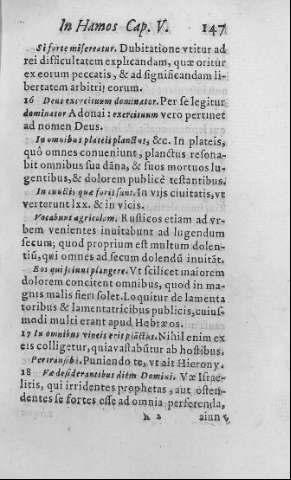 In Hamos Cap. V. 147
Si forte misereatur. Dubitatione vtitur ad
rei difficultatem explicandam, quæ oritur
ex eorum peccatis, & ad significandam li-
bertatem arbitrij eorum.
16 Deus exercituum dominator. Per se legitur
dominator Adonai: exercituum vero pertinet
ad nomen Deus.
In omnibus plateis planctus, &c. In plateis,
quò omnes conueniunt, planctus resona-
bit omnibus sua dāna, & suos mortuos lu-
gentibus, & dolorem publicè testantibus.
In cunctis quæ foris sunt. In vijs ciuitatis, vt
verterunt lxx. & in vicis.
Vocabunt agricolam. Rusticos etiam ad vr-
bem venientes inuitabunt ad lugendum
secum; quod proprium est multum dolen-
tiũ, qui omnes ad secum dolendũ inuitāt.
Eos qui sciunt plangere. Vt scilicet maiorem
dolorem concitent omnibus, quod in ma-
gnis malis fieri solet. Loquitur de lamenta
toribus & lamentatricibus publicis, cuius-
modi multi erant apud Hebræos.
17 In omnibus vineis erit plāctus. Nihil enim ex
eis colligetur, quia vastabũtur ab hostibus.
Pertransibi. Puniendo te, vt ait Hierony.
18 Væ desiderantibus diem Domini. Væ Israe-
litis, qui irridentes prophetas, aut osten-
dentes se fortes esse ad omnia perferenda,
k 2 aiunt